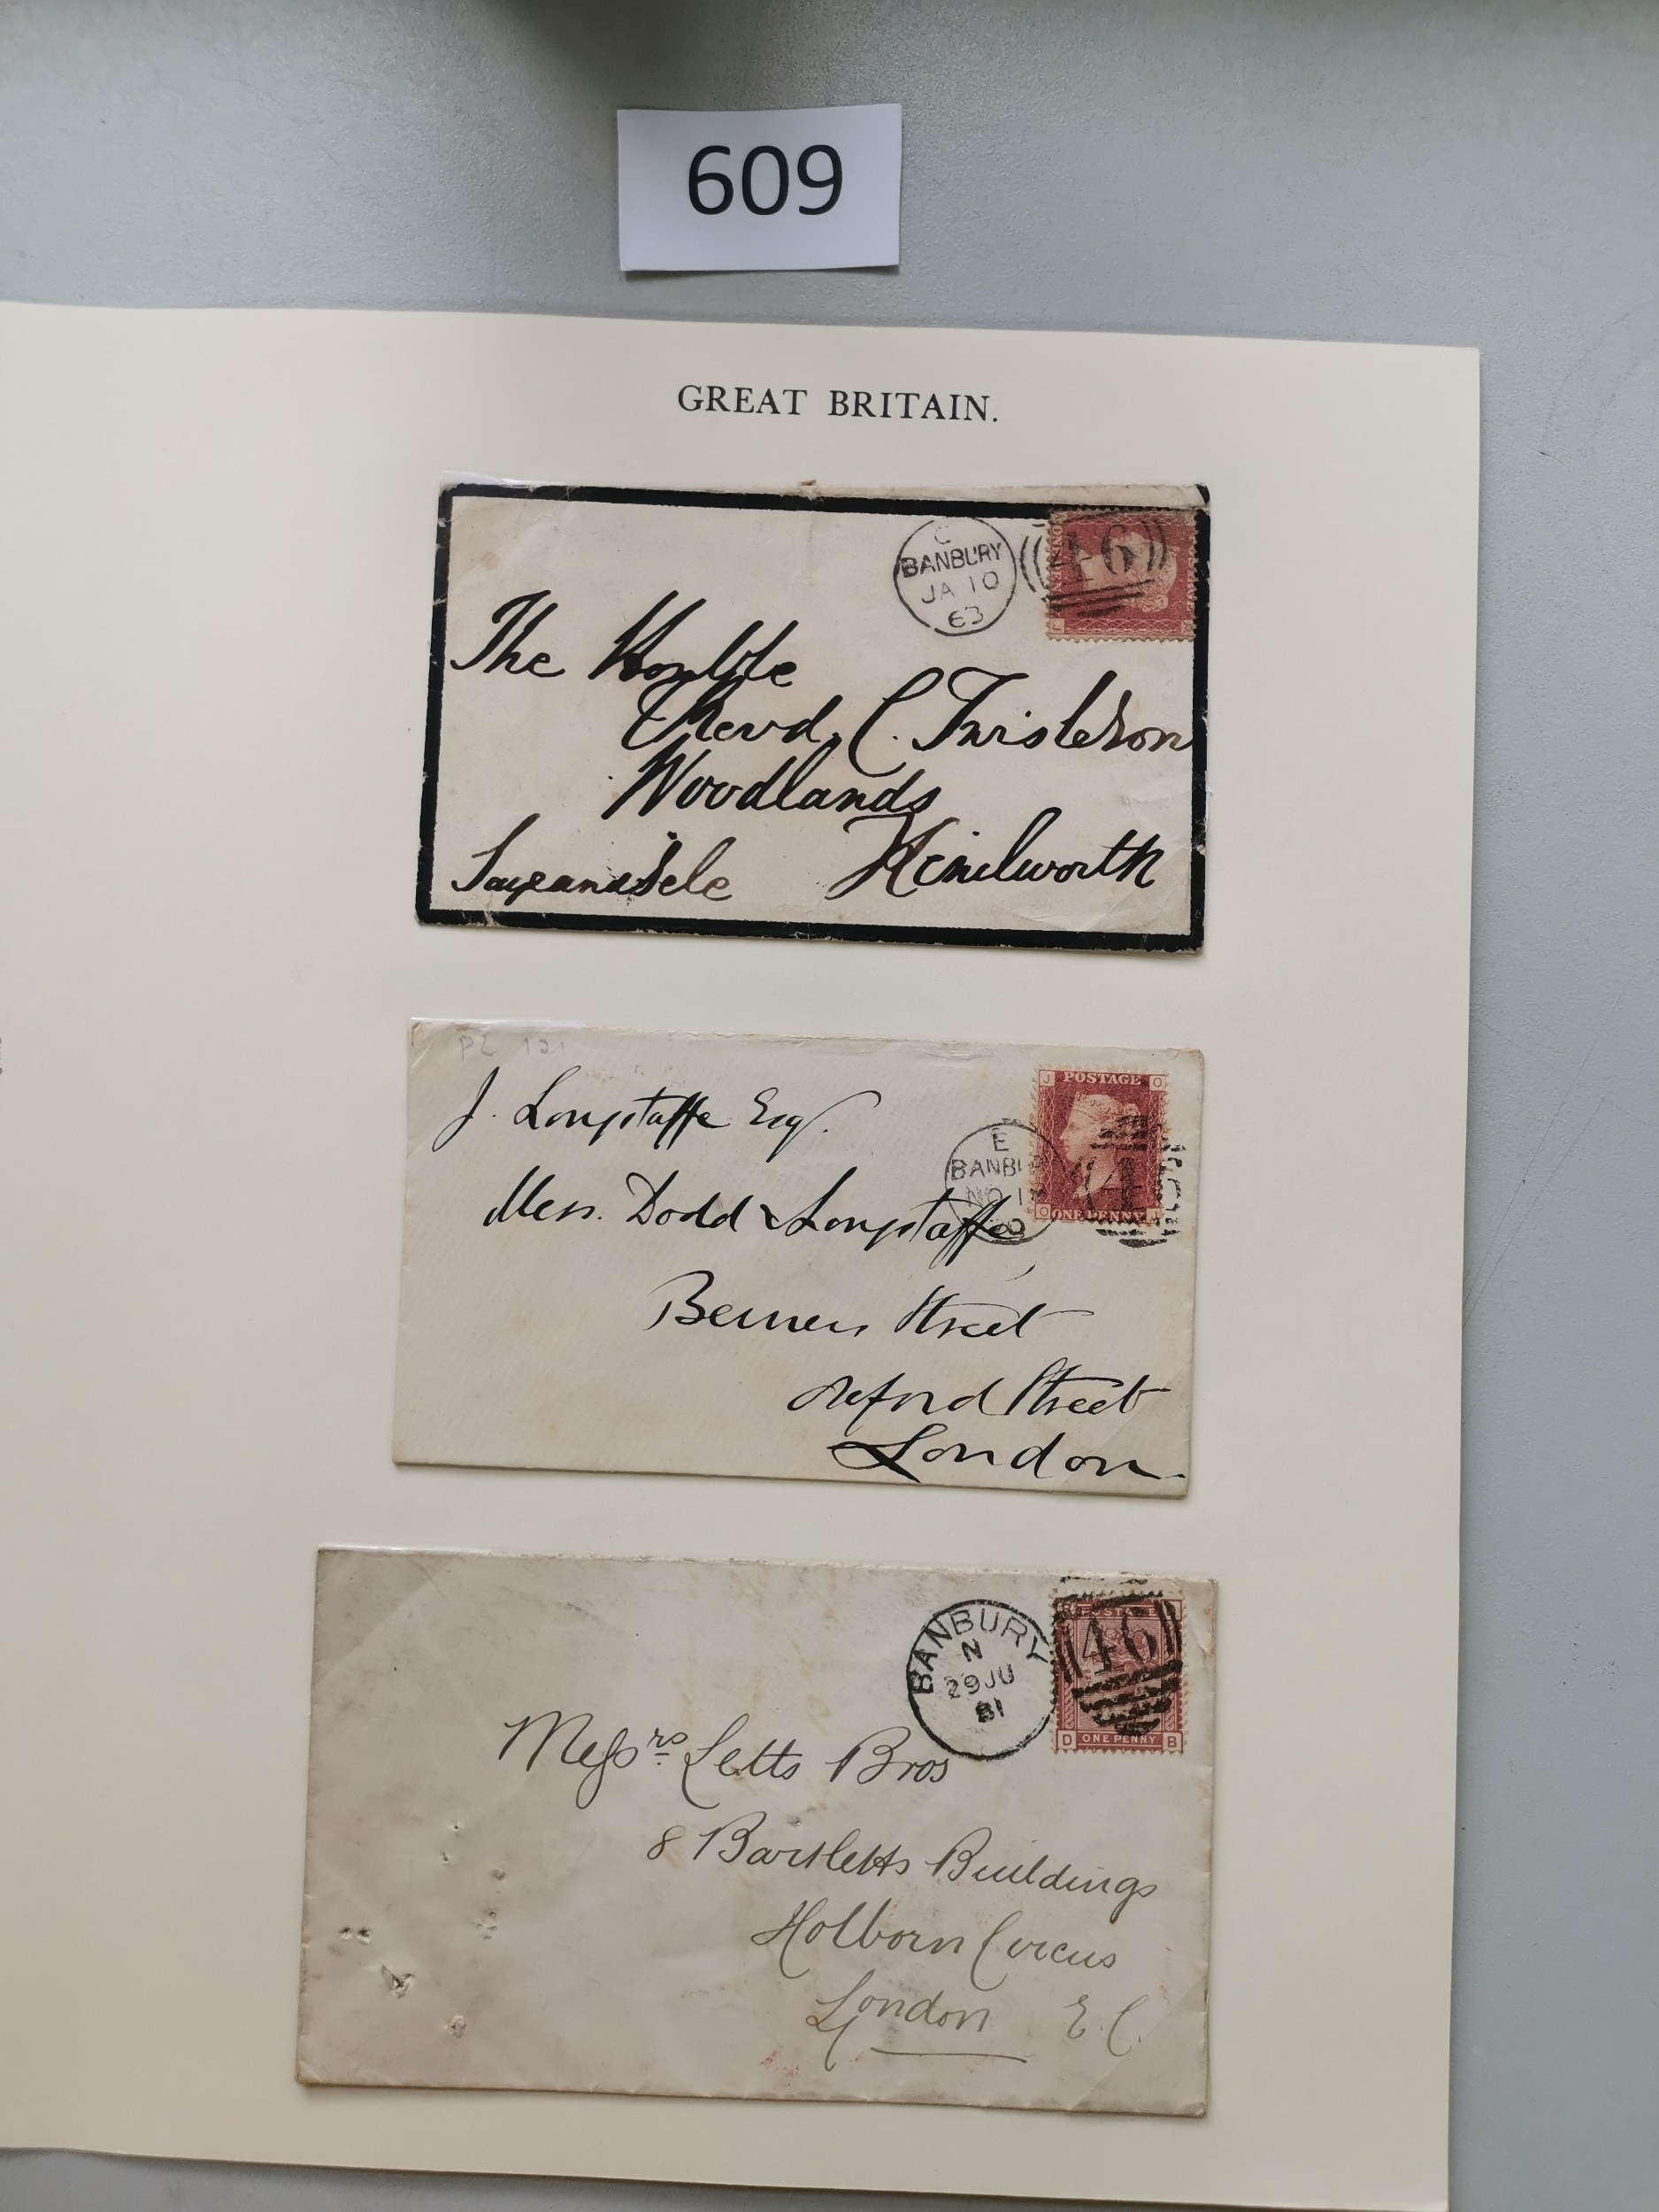 609
GREAT BRITAIN.
C
BANBURY
JA 10
63
46
The Honble
Revd. C. Twisleton
Woodlands
Kenilworth
Sayeandsele
PL 121
J. Longstaffe Esq.
Mess. Dodd & Longstaffe
Berners Street
Oxford Street
London
J POSTAGE O
O ONE PENNY J
E
BANBU
NO 1
4
BANBURY
N
29 JU
81
46
POSTAGE
D ONE PENNY B
Messrs Letts Bros
8 Bartletts Buildings
Holborn Circus
London E.C.